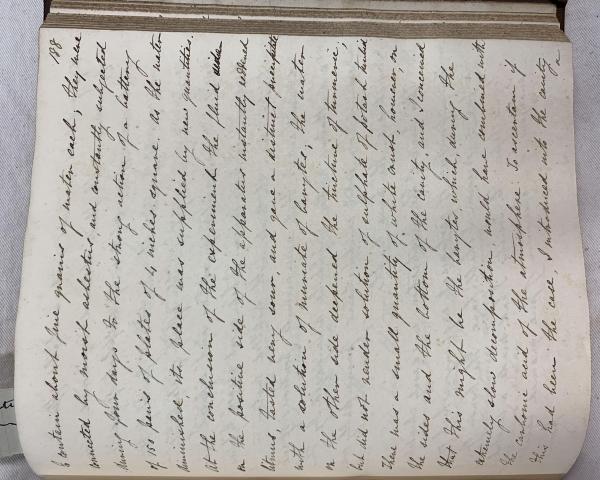 188
to contain about five grains of water each; they were
connected by moist asbestus, and constantly subjected
during four days to the strong action of a battery
of 150 pairs of plates of 4 inches square. As the water
diminished, its place was supplied by new quantities.
At the conclusion of the experiment the fluid
on the positive side of the apparatus instantly reddened
litmus, tasted very sour, and gave a distinct precipitate
with a solution of muriate of barytes; the water
on the other side deepened the tincture of turmeric,
but did not render solution of sulphate of potash turbid
There was a small quantity of white crust, however on
the sides and the bottom of the cavity, and I conceived
that this might be the barytes which, during the
extremely slow decomposition, would have combined with
the carbonic acid of the atmosphere. To ascertain if
this had been the case, I introduced into the cavity a